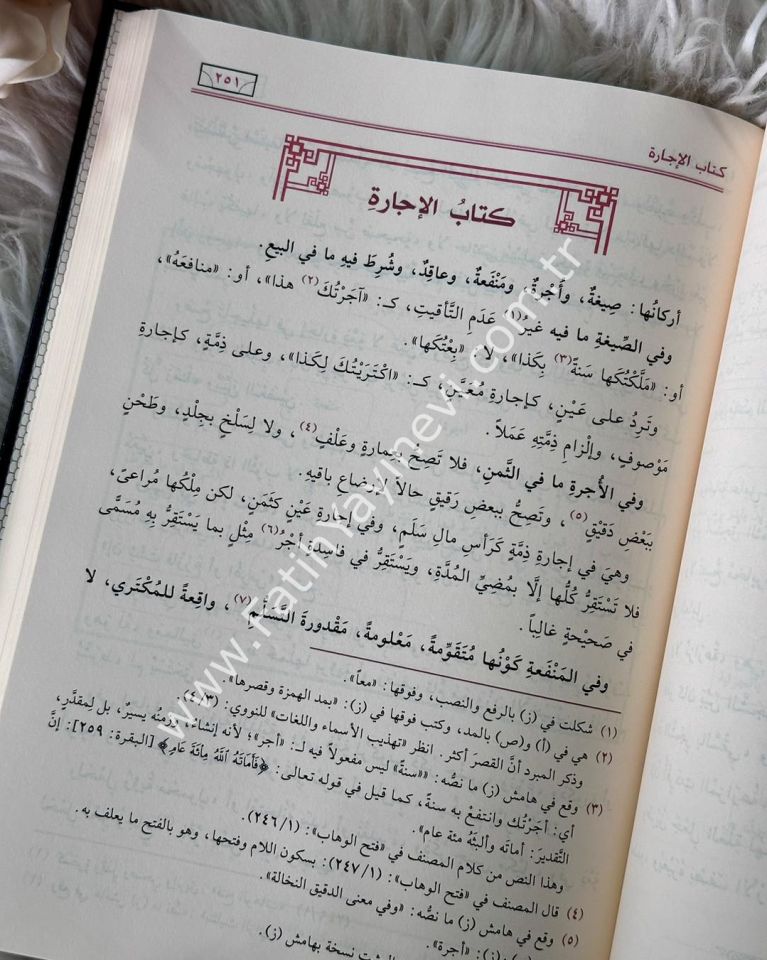 ٢٥١
كتاب الإجارة
كتابُ الإجارةِ
أركانُها: صِيغةٌ، وأُجْرةٌ، ومَنْفَعةٌ، وعاقِدٌ، وشُرِطَ فيهِ ما في البيعِ.
وفي الصِّيغةِ ما فيه غيرُ(١) عَدَمِ التَّأقيتِ، كـ: «آجَرْتُكَ(٢) هذا»، أو: «منافعَهُ»،
أو: «مَلَّكْتُكَها سَنةً(٣) بِكَذا»، لا: «بِعْتُكَها».
وتَرِدُ على عَيْنٍ، كـإجارةِ مُعَيَّنٍ، كـ: «اكْتَرَيْتُكَ لِكَذا»، وعلى ذِمَّةٍ، كـإجارةِ
مَوْصوفٍ، وإلْزامِ ذِمَّتِهِ عَمَلاً.
وفي الأُجرةِ ما في الثَّمنِ، فلا تَصِحُّ بعِمارةٍ وعَلْفٍ(٤)، ولا لِسَلْخٍ بجِلْدٍ، وطَحْنٍ
ببَعْضِ دَقيقٍ(٥)، وتَصِحُّ ببعضِ رَقيقٍ حالاً لإرْضاعِ باقيهِ.
وهيَ في إجارةِ ذِمَّةٍ كَرَأسِ مالِ سَلَمٍ، وفي إجارةِ عَيْنٍ كَثَمَنٍ، لكن مِلْكُها مُراعىً،
فلا تَسْتَقِرُّ كلُّها إلَّا بمُضِيِّ المُدَّةِ، ويَسْتَقِرُّ في فاسِدةٍ أجْرُ(٦) مِثْلٍ بما يَسْتَقِرُّ بِهِ مُسَمًّى
في صَحيحةٍ غالِباً.
وفي المَنْفَعةِ كَوْنُها مُتَقَوِّمةً، مَعْلومةً، مَقْدورةَ التَّسَلُّمِ(٧)، واقِعةً للمُكْتَري، لا
(١) شكلت في (ز) بالرفع والنصب، وفوقها: «معاً».
(٢) هي في (أ) و(ص) بالمد، وكتب فوقها في (ز): «بمد الهمزة وقصرها».
وذكر المبرد أنَّ القصرَ أكثر. انظر «تهذيب الأسماء واللغات» للنووي: (٤/٣).
(٣) وقع في هامش (ز) ما نصُّه: ««سنةً» ليس مفعولاً فيه لـ: «أجر»؛ لأنه إنشاءٌ، وزمنُه يسيرٌ، بل لمقدَّرٍ،
أي: أجَرْتُك وانتفعْ به سنةً، كما قيل في قوله تعالى: ﴿فَأَمَاتَهُ اللَّهُ مِائَةَ عَامٍ﴾ [البقرة: ٢٥٩]: إنَّ
التقديرَ: أماتَه وألبثَهُ مئة عام».
وهذا النص من كلام المصنف في «فتح الوهاب»: (٢٤٦/١).
(٤) قال المصنف في «فتح الوهاب»: (٢٤٧/١): بسكون اللام وفتحها، وهو بالفتح ما يعلف به.
(٥) وقع في هامش (ز) ما نصُّه: «وفي معنى الدقيق النخالة».
(ز): «أجرة».
نسخة بهامش (ز).
www.FatihYayinevi.com.tr